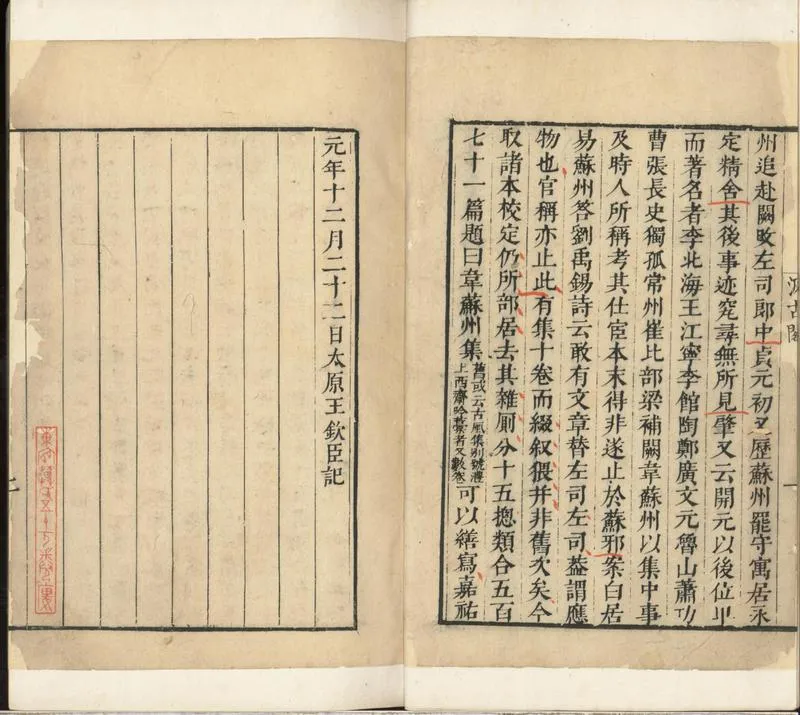 州追赴闕改左司郎中貞元初又歷蘇州罷守寓居永
定精舍其後事迹究尋無所見肇又云開元以後位卑
而著名者李北海王江寧李館陶鄭廣文元魯山蕭功
曹張長史獨孤常州崔比部梁補闕韋蘇州以集中事
及時人所稱考其仕宦本末得非遂止於蘇邪案白居
易蘇州答劉禹錫詩云敢有文章替左司左司蓋謂應
物也官稱亦止此有集十卷而綴叙猥并非舊次矣今
取諸本校定仍所部居去其雜厠分十五摠類合五百
七十一篇題曰韋蘇州集舊或云古風集別號灃上西齋吟藁者又數卷可以繕寫嘉祐
汲古閣
元年十二月二十二日太原王欽臣記